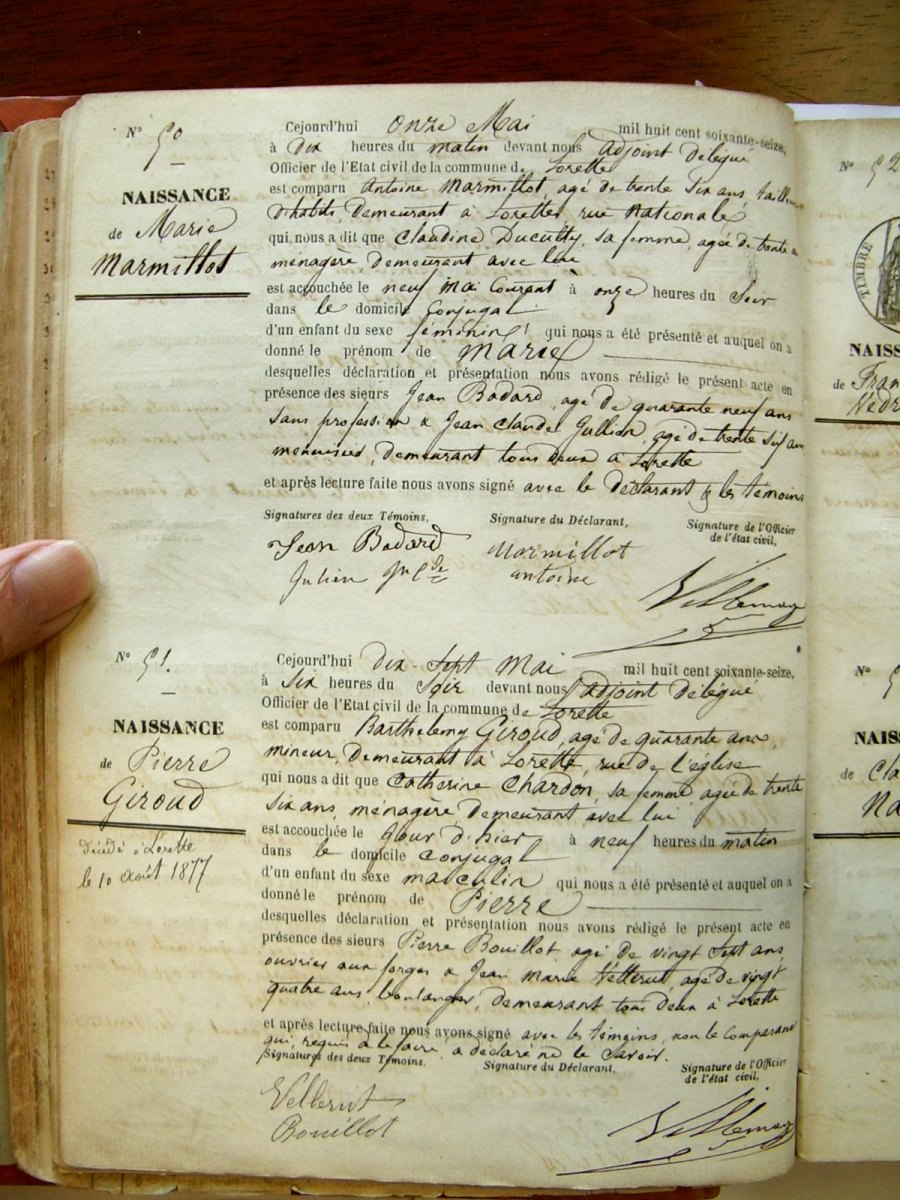 N° 50
NAISSANCE
de Marie
Marmillot
Cejourd'hui onze Mai mil huit cent soixante-seize,
à Dix heures du matin devant nous adjoint Délégué
Officier de l'Etat civil de la commune de Lorette
est comparu Antoine Marmillot, agé de trente six ans,
d'habits, Demeurant à Lorette, rue Nationale
qui nous a dit que Claudine Ducultty, sa femme, agée de trente
ménagère, demeurant avec lui
est accouchée le neuf Mai Courant à onze heures du Soir
dans le domicile Conjugal
d'un enfant du sexe féminin qui nous a été présenté et auquel on a
donné le prénom de Marie
desquelles déclaration et présentation nous avons rédigé le présent acte en
présence des sieurs Jean Badard, agé de quarante neuf ans
sans profession & Jean Claude Jullien, agé de trente six ans
menuisier, demeurant tous deux à Lorette
et après lecture faite nous avons signé avec le Déclarant & les témoins
Signatures des deux Témoins, Signature du Déclarant, Signature de l'Officier
de l'état civil,
Jean Badard Marmillot
Julien antoine
N° 51
NAISSANCE
de Pierre
Giroud
décédé à Lorette
le 10 août 1877
Cejourd'hui Dix-Sept Mai mil huit cent soixante-seize,
à Six heures du Soir devant nous adjoint Délégué
Officier de l'Etat civil de la commune de Lorette
est comparu Barthelemy Giroud, agé de quarante ans,
mineur, Demeurant à Lorette, rue de l'église
qui nous a dit que Catherine Chardon, sa femme, agée de trente
six ans, ménagère demeurant avec lui
est accouchée le jour d'hier à neuf heures du matin
dans le domicile Conjugal
d'un enfant du sexe masculin qui nous a été présenté et auquel on a
donné le prénom de Pierre
desquelles déclaration et présentation nous avons rédigé le présent acte en
présence des sieurs Pierre Bouillot, agé de vingt sept ans,
ouvrier aux forges & Jean Marie Vellerut, agé de vingt
quatre ans, boulanger, demeurant tous deux à Lorette
et après lecture faite nous avons signé avec les témoins, non le Comparant
qui, requis de le faire, a déclaré ne le Savoir.
Signatures des deux Témoins, Signature du Déclarant, Signature de l'Officier
de l'état civil,
Vellerut
Bouillot
N° 52
TIMBRE
NAISS
de Fran
Nedr
N° 5
NAISS
de Cla
Na